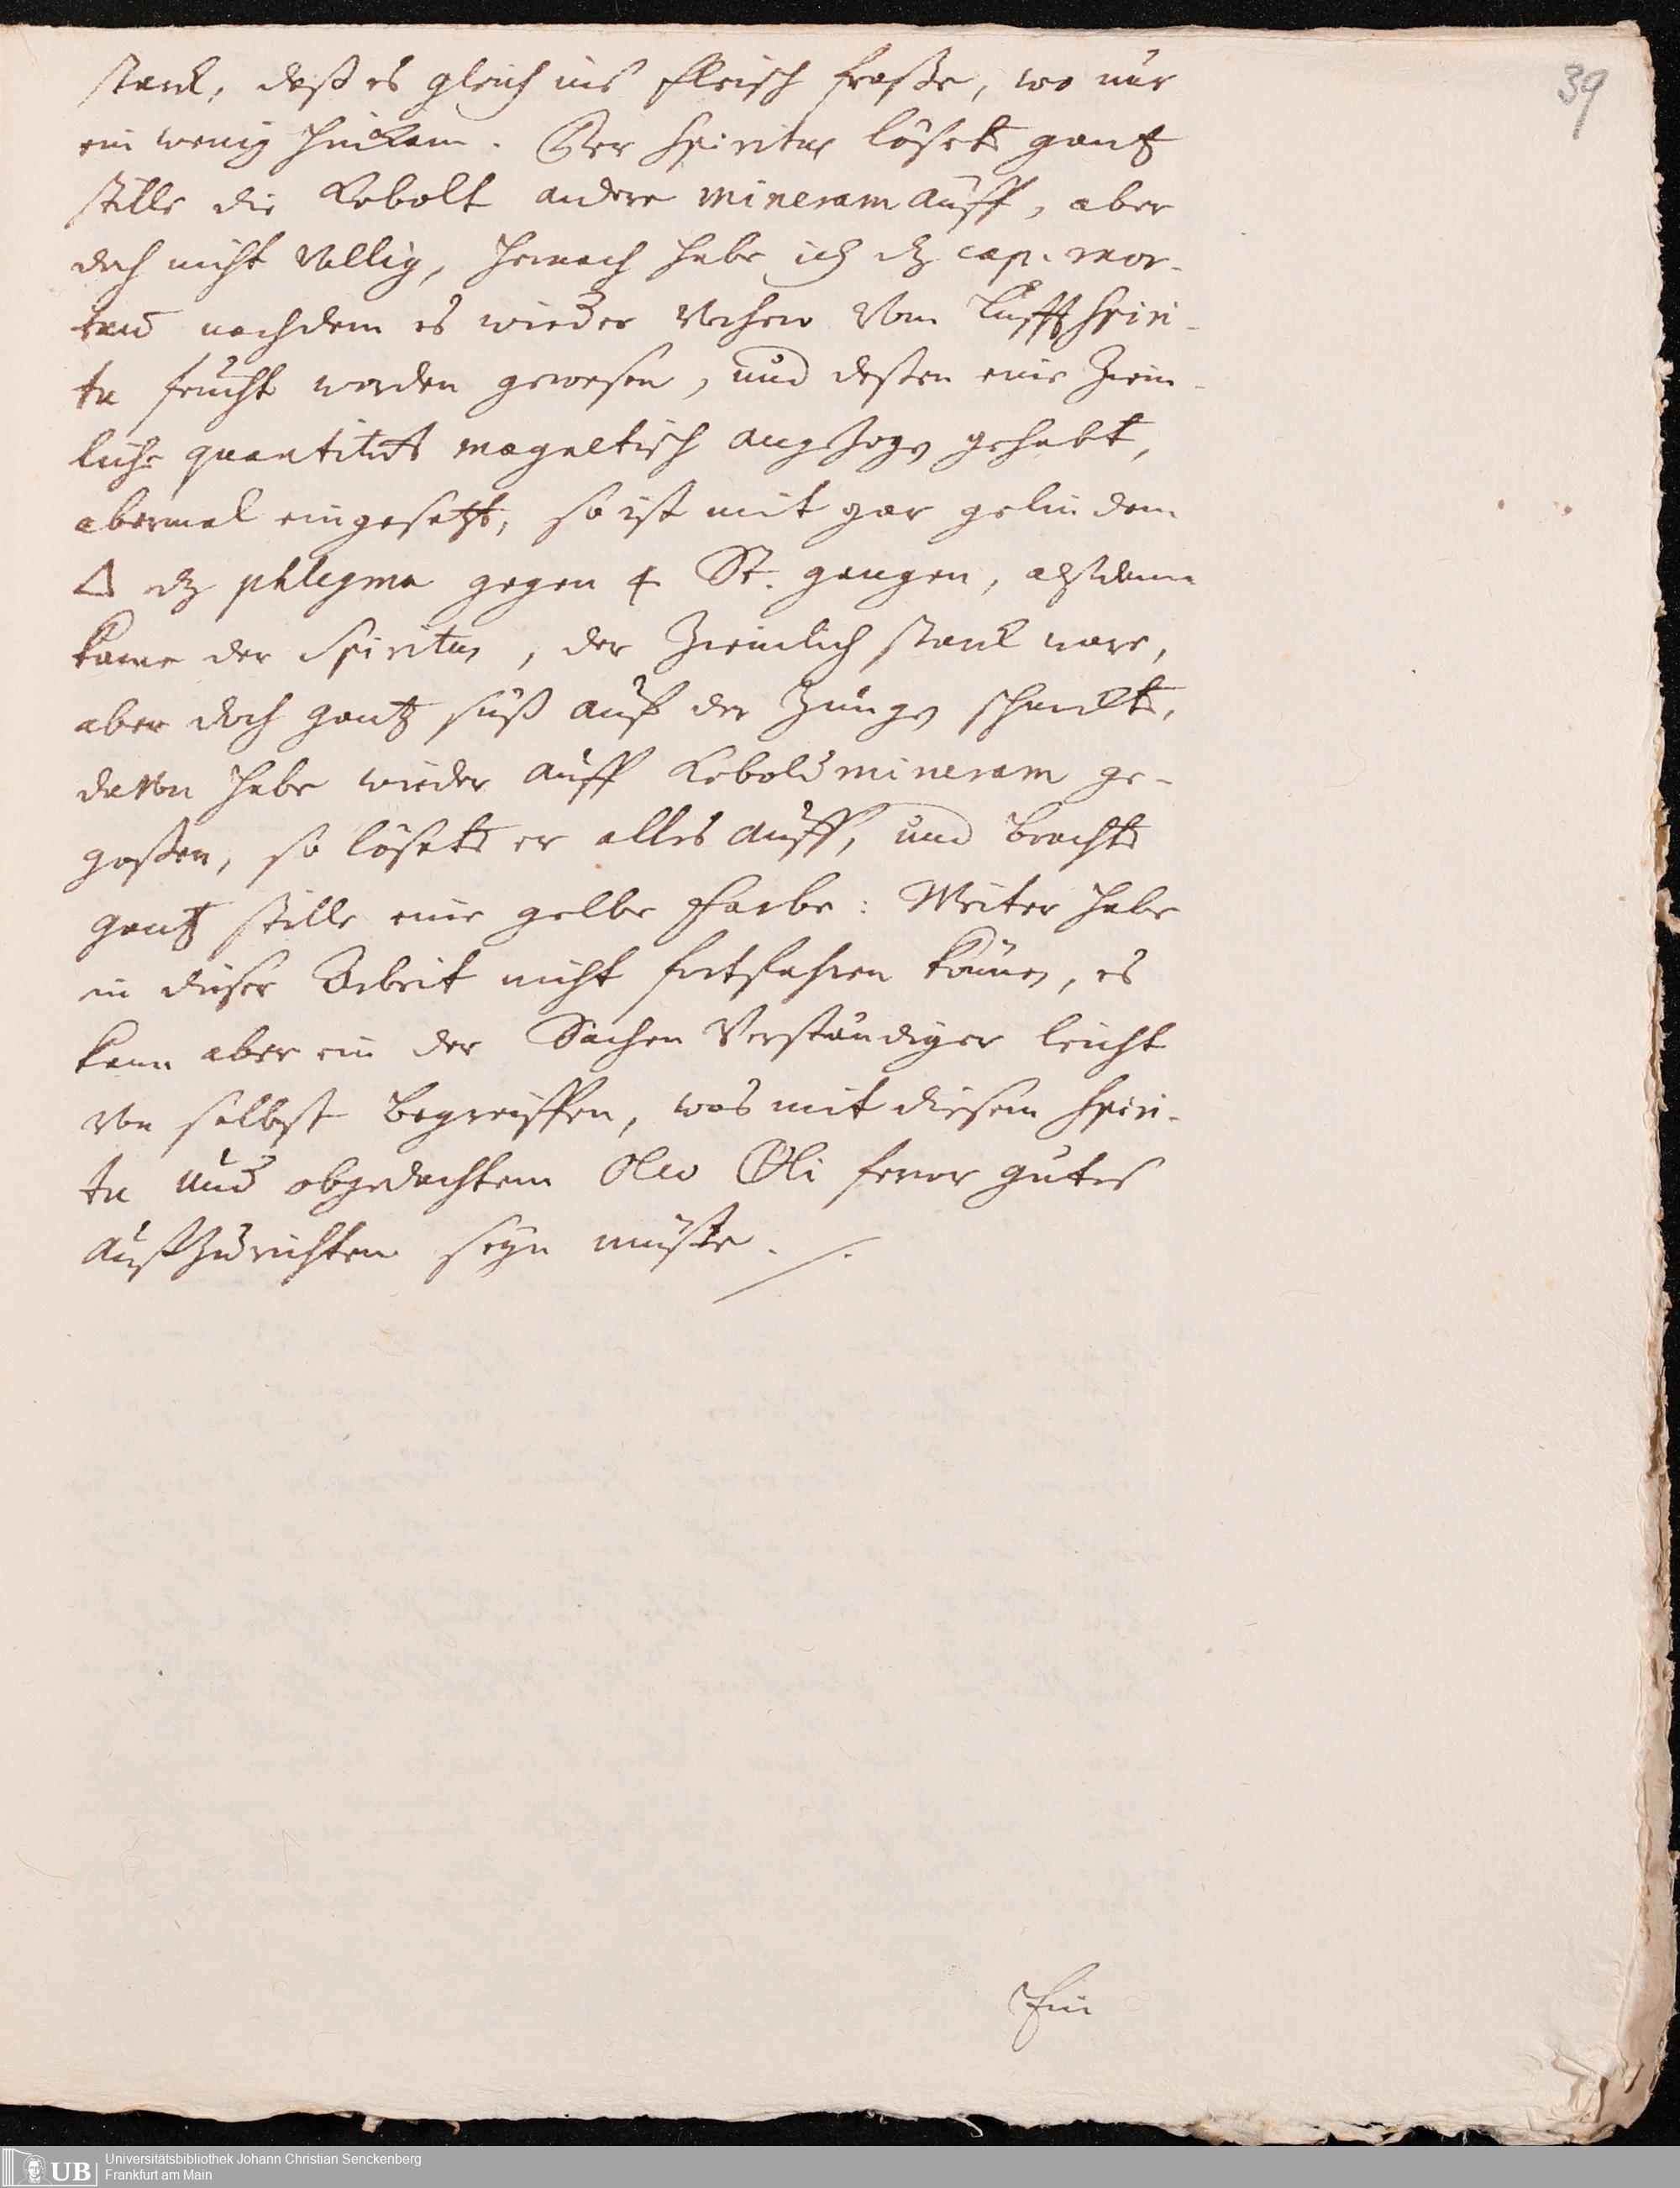 39
starck, daß es gleich ins Fleisch fraße, wo nur
ein wenig hinkam. Der Spiritus lösete gantz
stille die Kobolt andere mineram auff, aber
doch nicht völlig, hernach habe ich dz cap. mor-
tuum nachdem es wieder vom Lufft Spiri-
tu feucht worden gewesen, und deßen eine Ziem-
liche quantitet magnetisch angezogen gehabt,
abermal eingesetzt, so ist mit gar gelindem
△ dz phlegma gegen 4 St. gangen, alßdann
kame der Spiritus, der Ziemlich starck ware,
aber doch gantz süß auf der Zungen schmeckte,
davon habe wieder auff Kobold mineram ge-
goßen, so lösete er alles auff, und brachte
gantz stille eine gelbe Farbe: Weiter habe
in dieser Arbeit nicht fortfahren können, es
kann aber ein der Sachen Verständiger leicht
von selbst begreiffen, was mit diesem Spiri-
tu und obgedachtem Oleo ferner gutes
außzurichten seyn müste. ./.
Ein
UB Universitätsbibliothek Johann Christian Senckenberg
Frankfurt am Main